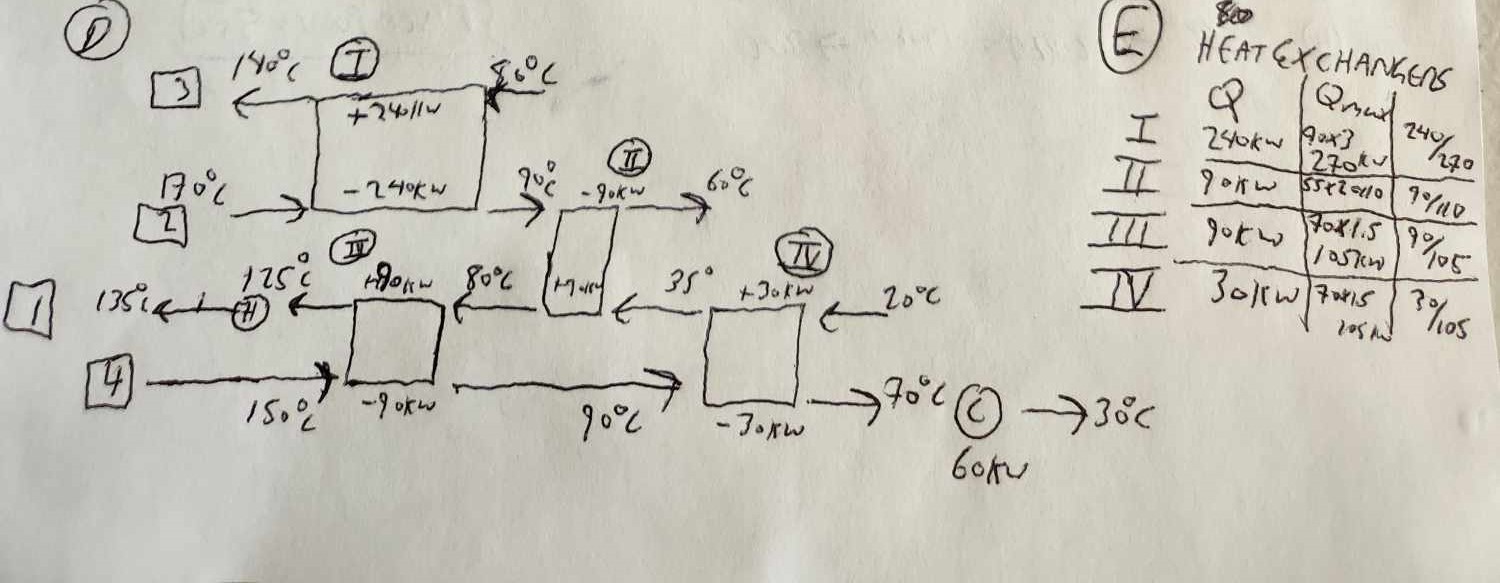 D
140°C
I
80°C
3
+240kw
-240kw
170°C
2
90°C
II
-90kw
60°C
135°C
H
125°C
IV
+90kw
80°C
35°
IV
+30kw
20°C
1
4
150°C
-90kw
90°C
-30kw
70°C
C
30°C
60kw
E
HEAT EXCHANGERS
Q
Qmax
I
240kw
90x3
270kw
240/270
II
90kw
90/110
III
90kw
70x1.5
105kw
90/105
IV
30kw
70x1.5
105kw
30/105